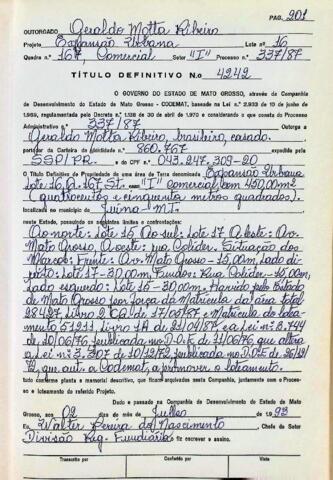 PAG. 201
OUTORGADO Geraldo Motta Ribeiro
Projeto Expansão Urbana Lote n.o 16
Quadra n.o 167, Comercial Setor "I" Processo n.o 337/87
TÍTULO DEFINITIVO N.o 4242
O GOVERNO DO ESTADO DE MATO GROSSO, através da Companhia
de Desenvolvimento do Estado de Mato Grosso - CODEMAT, baseado na Lei n.o 2.933 de 10 de junho de
1.969, regulamentada pelo Decreto n.o 1.138 de 30 de abril de 1.970 e considerando o que consta do Processo
Administrativo n.o 337/87 Outorga a
Geraldo Motta Ribeiro, brasileiro, casado.
portador da Carteira de Identidade n.o 860.767 expedida pela
SSP/PR. e do CPF n.o 043.247.309-20
O Título Definitivo de Propriedade de uma área de Terra denominada Expansão Urbana
Lote 16 Q. 167 St. "I" Comercial com 450,00m2
(quatrocentos e cinquenta metros quadrados).
localizado no município de Juina-MT.
neste Estado, possuindo os seguintes limites e confrontações:
Ao norte: Lote 15 Ao sul: Lote 17 A leste: Av.
Mato Grosso, A oeste: rua Colider. Situação dos
Marcos: Frente: Av. Mato Grosso - 15,00m, Lado di-
reito: Lote 17 - 30,00m, Fundos: Rua Colider - 15,00m,
Lado esquerdo: Lote 15 - 30,00m. Havido pelo Estado
de Mato Grosso por força da Matrícula da área total
28427 Livro 2 de 17/05/87 e Matrícula do lotea-
mento 51211 Livro 1A de 21/04/87 e a Lei n.o 3.744
de 10/06/76, publicada no D.O.E. de 21/06/76 que altera
a Lei n.o 3.307 de 10/12/72, publicada no D.O.E. de 26/12/
72, que aut. a Codemat, a promover o loteamento.
tudo conforme planta e memorial descritivo, que ficam arquivados nesta Companhia, juntamente com o Proces-
so e loteamento do referido Projeto.
Dado e passado na Companhia de Desenvolvimento do Estado de Mato
Grosso, aos 02 dias do mês de Julho de 1.993
Eu, Walter Pereira do Nascimento Chefe do Setor
Divisão Reg. Fundiária fiz escrever e assino.
Transcrito por Conferido por Visto